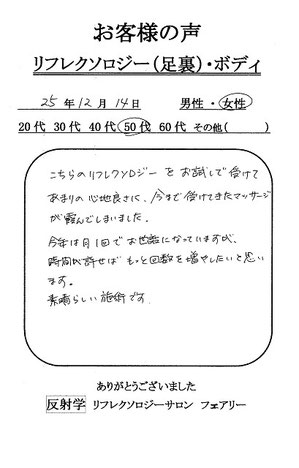 お客様の声
リフレクソロジー(足裏)・ボディ
25年12月14日 男性・女性
20代 30代 40代 50代 60代 その他( )
こちらのリフレクソロジーをお試しで受けて
あまりの心地良さに、今まで受けてきたマッサージ
が霞んでしまいました。
今年は月1回でお世話になっていますが、
時間が許せばもっと回数を増やしたいと思い
ます。
素晴らしい施術です
ありがとうございました
反射学 リフレクソロジーサロン フェアリー